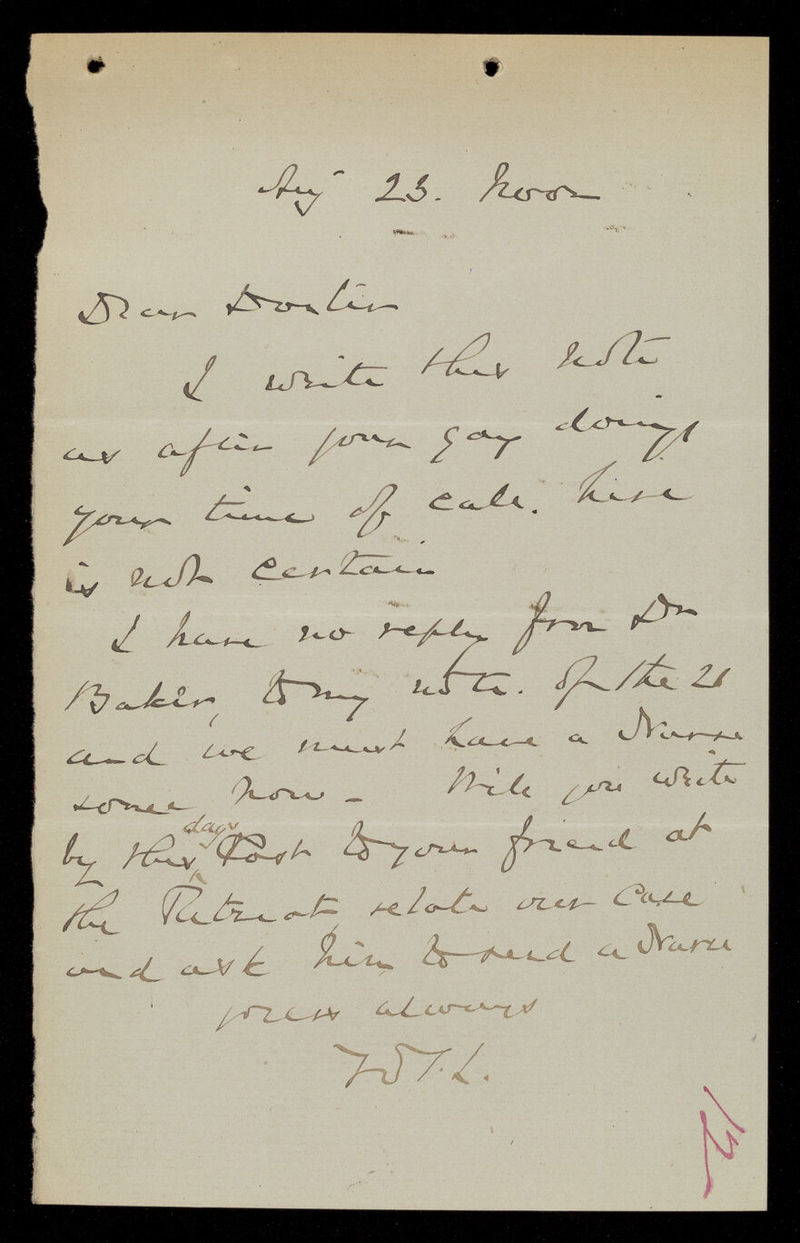 Aug 23. Noon
Dear Doctor
I write this note
as after your gay doings
your time of call. here
is not certain
I have no reply from Dr
Baker, to my note. of the 21
and we must have a Nurse
some how - Will you write
by this days Post to your friend at
the Retreat, relate our case
and ask him to send a Nurse
yours always
T.L.